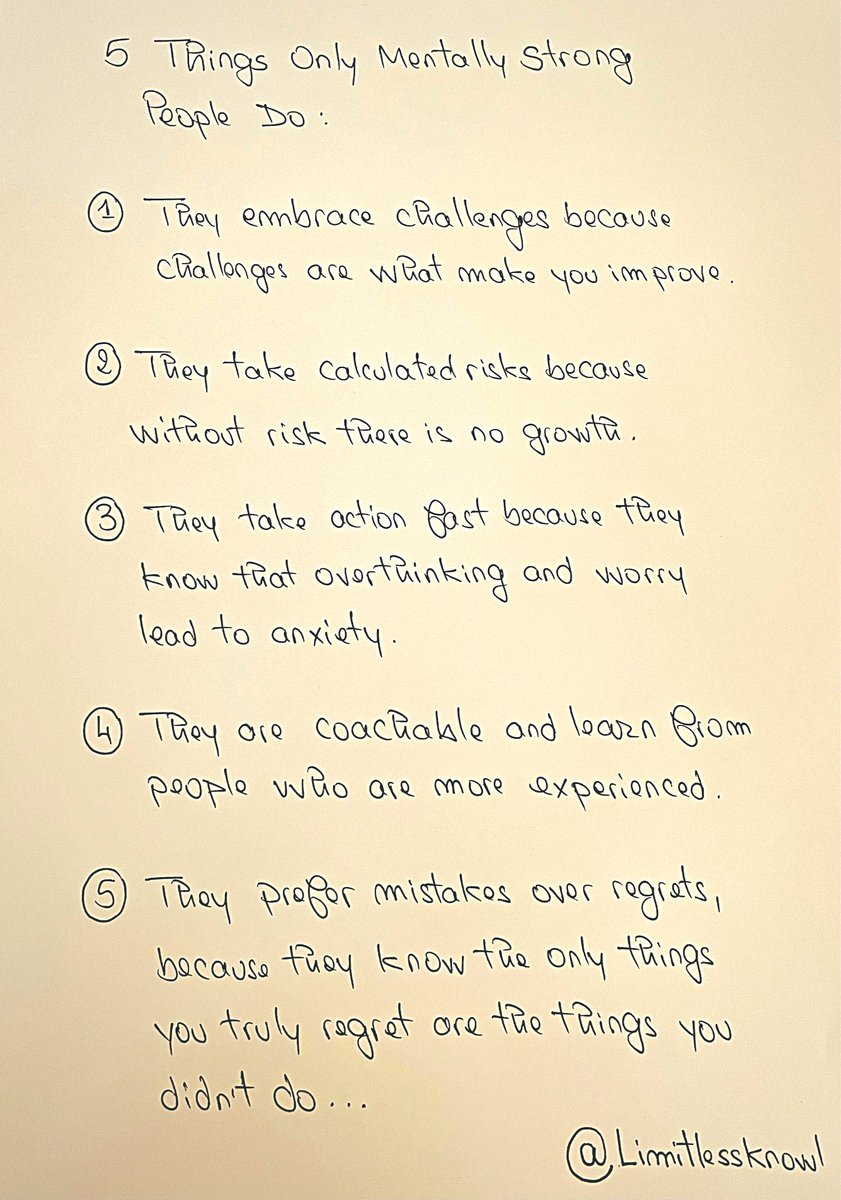 5 Things Only Mentally Strong
People Do:
① They embrace challenges because
challenges are what make you improve.
② They take calculated risks because
without risk there is no growth.
③ They take action fast because they
know that overthinking and worry
lead to anxiety.
④ They are coachable and learn from
people who are more experienced.
⑤ They prefer mistakes over regrets,
because they know the only things
you truly regret are the things you
didn't do...
@Limitlessknowl